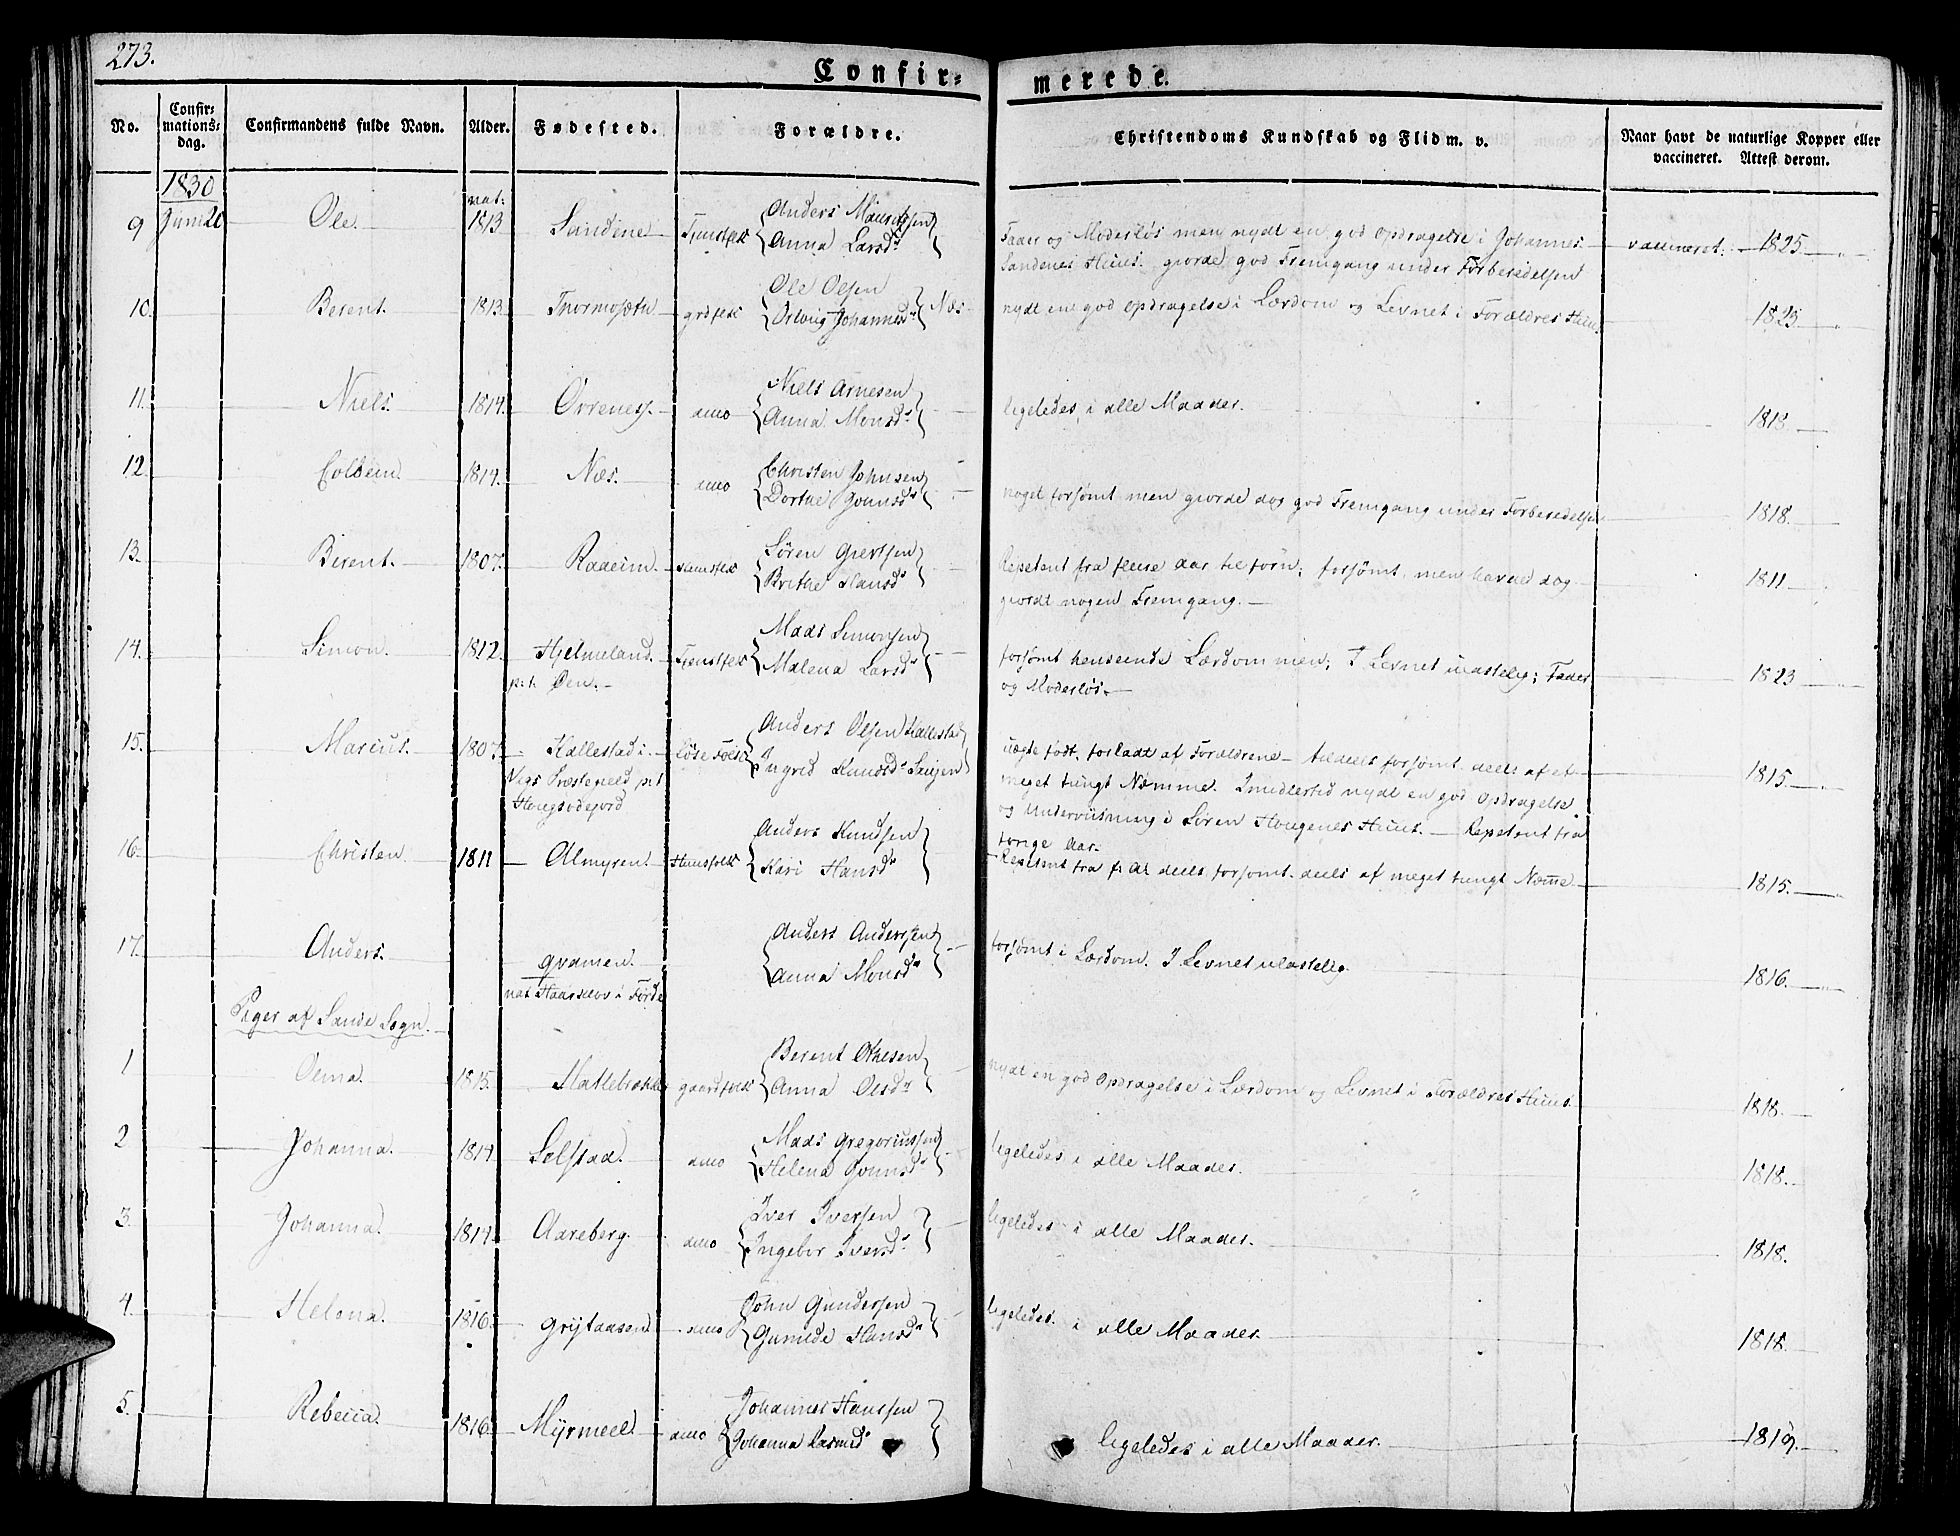 273.
Confir= merede.
No. Confir= mations= dag. Confirmandens fulde Navn. Alder. Fødested. Forældre. Christendoms Kundskab og Flid m. v. Naar havt de naturlige Kopper eller vaccineret. Attest derom.
1830
9 Ole nat: 1813 Sandene Tjenstfolk Anders Anna Larsd. Fader og Moderløs men nydt en god opdragelse i Johannes Sandenes Huus. giorde god Fremgang under Forberedelsen vaccineret. 1825.
10. Berent. 1813. grdfolk Ole Olsen Johannesd. Næs nydt en god opdragelse i Lærdom og Levnet i Forældres Huus. 1825
11. Niels. 1814. Øvrenes. dmo Niels Arnesen Anna Monsd. ligeledes i alle Maader. 1818.
12. Colbein. 1814. Næs. dmo Christen Johnsen Dorthe noget forsømt men giorde dog god Fremgang under Forberedelsen 1818.
13. Berent. 1807. Raaeim. Huusfolk Søren Giertsen Brithe Hansd. Repetent fra flere Aar tilforn; forsømt, men havde dog giordt nogen Fremgang. 1811
14. Simon. 1812. Hjelmeland. p.t. Øen. Tjenstfolk Mads Simonsen Malena Larsd. forsømt henseende Lærdom men; I Levnet ulastelig; Fader og Moderløs. 1823
15. Marcus. 1807. Kallestad i Præstegield p.t. løse Folk Anders Olsen Kallestad Ingrid Knudsd. uægte født, forladt af Forældrene. tildeels forsømt. deels af et meget tungt Næmme. Imidlertid nydt en god opdragelse og Underviisning i Søren Hougenes Huus. Repetent fra forige Aar. 1815.
16. Christen. 1811 Almyren. Huusfolk Anders Knudsen Kari Hansd. Repetent fra f: A: deels forsømt. deels af meget tungt Næme 1815.
17. Anders. Qvamen. nat i Førde Anders Anderssen Anna Monsd. forsømt i Lærdom. I Levnet ulastelig. 1816.
Piger af Sande Sogn.
1 Olina. 1815. gaardfolk Berent Anna Olsd. nydt en god opdragelse i Lærdom og Levnet i Forældres Huus. 1818.
2 Johanna. 1814 Solstad. dmo Mads Gregoriussen Helena ligeledes i alle Maader. 1818.
3. Johanna. 1814. Aareberg. dmo Iver Iversen Ingebor Iversd. ligeledes i alle Maader. 1818.
4. Helena. 1816. dmo John Gundersen Gunilde Hansd. ligeledes i alle Maader. 1818.
5. Rebecca. 1816. Myrmeel. dmo Johannes Hanssen Johanna Rasmusd. ligeledes i alle Maader. 1819.